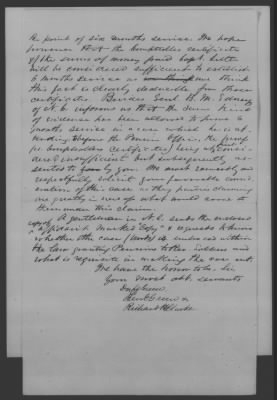 the point of six months service. We hope
however that the comptrollers certificate
of the sum of money paid Capt
will be considered sufficient to establish
6 months service as we think
this fact is clearly deducible from those
certificates. Besides Genl
of N.C. informs us that the same kind
of evidence has been allowed to prove 6
months service in cases which he is
before the Pension Office, the proof
(or comptrollers certificates) being at first
insufficient but subsequently
to by you. We most earnestly and
respectfully solicit your favorable
of this case as the parties claiming
are greatly in want of what would come to
them under this claim.
A gentleman in N.C. sends the enclosed
affidavit marked "Copy" & requests to know
whether the case is embraced within
the law granting Pensions to the widows and
what is requisite in making the case out.
We have the honor to be Sir
Your most obt. servants
Duff Green
Ben. E. Green &
Richard H. Clarke